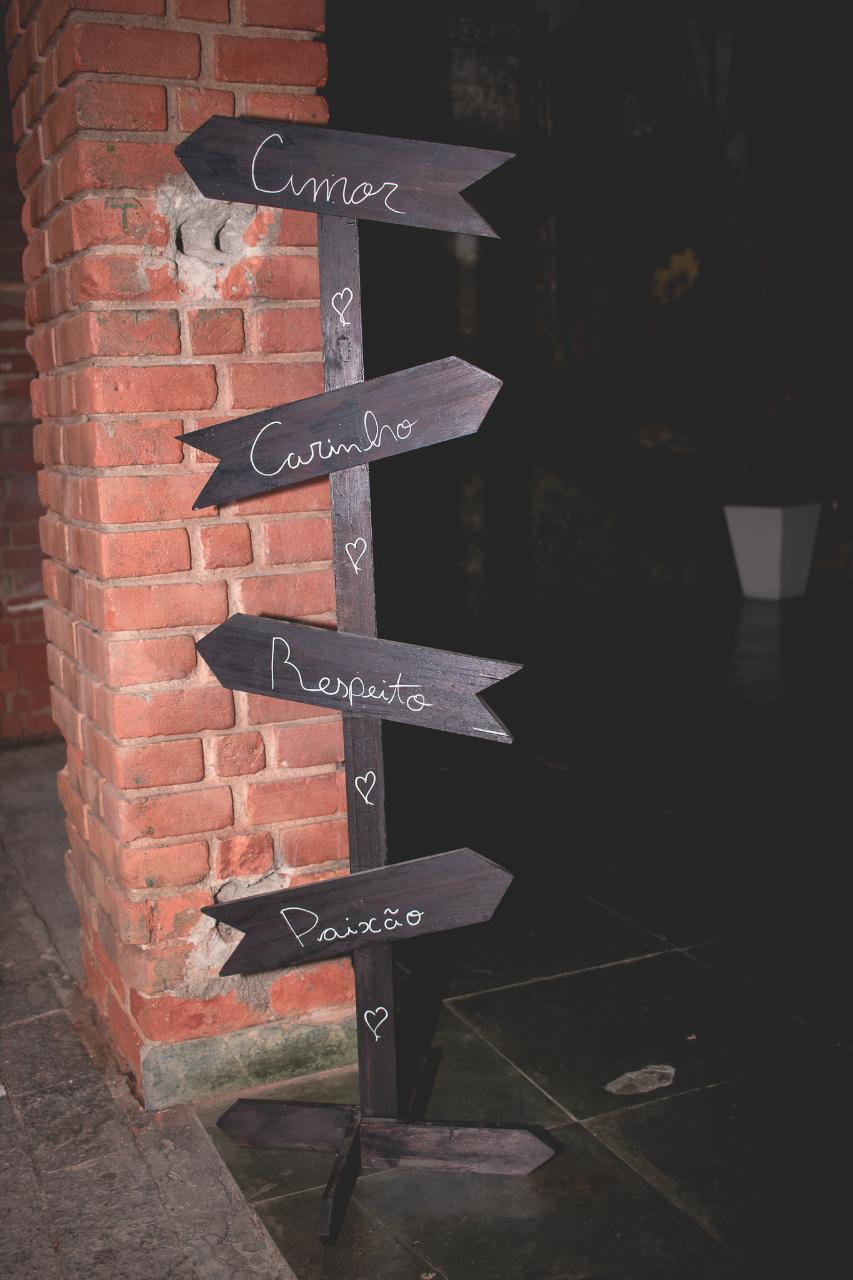 Amor
Carinho
Respeito
Paixão